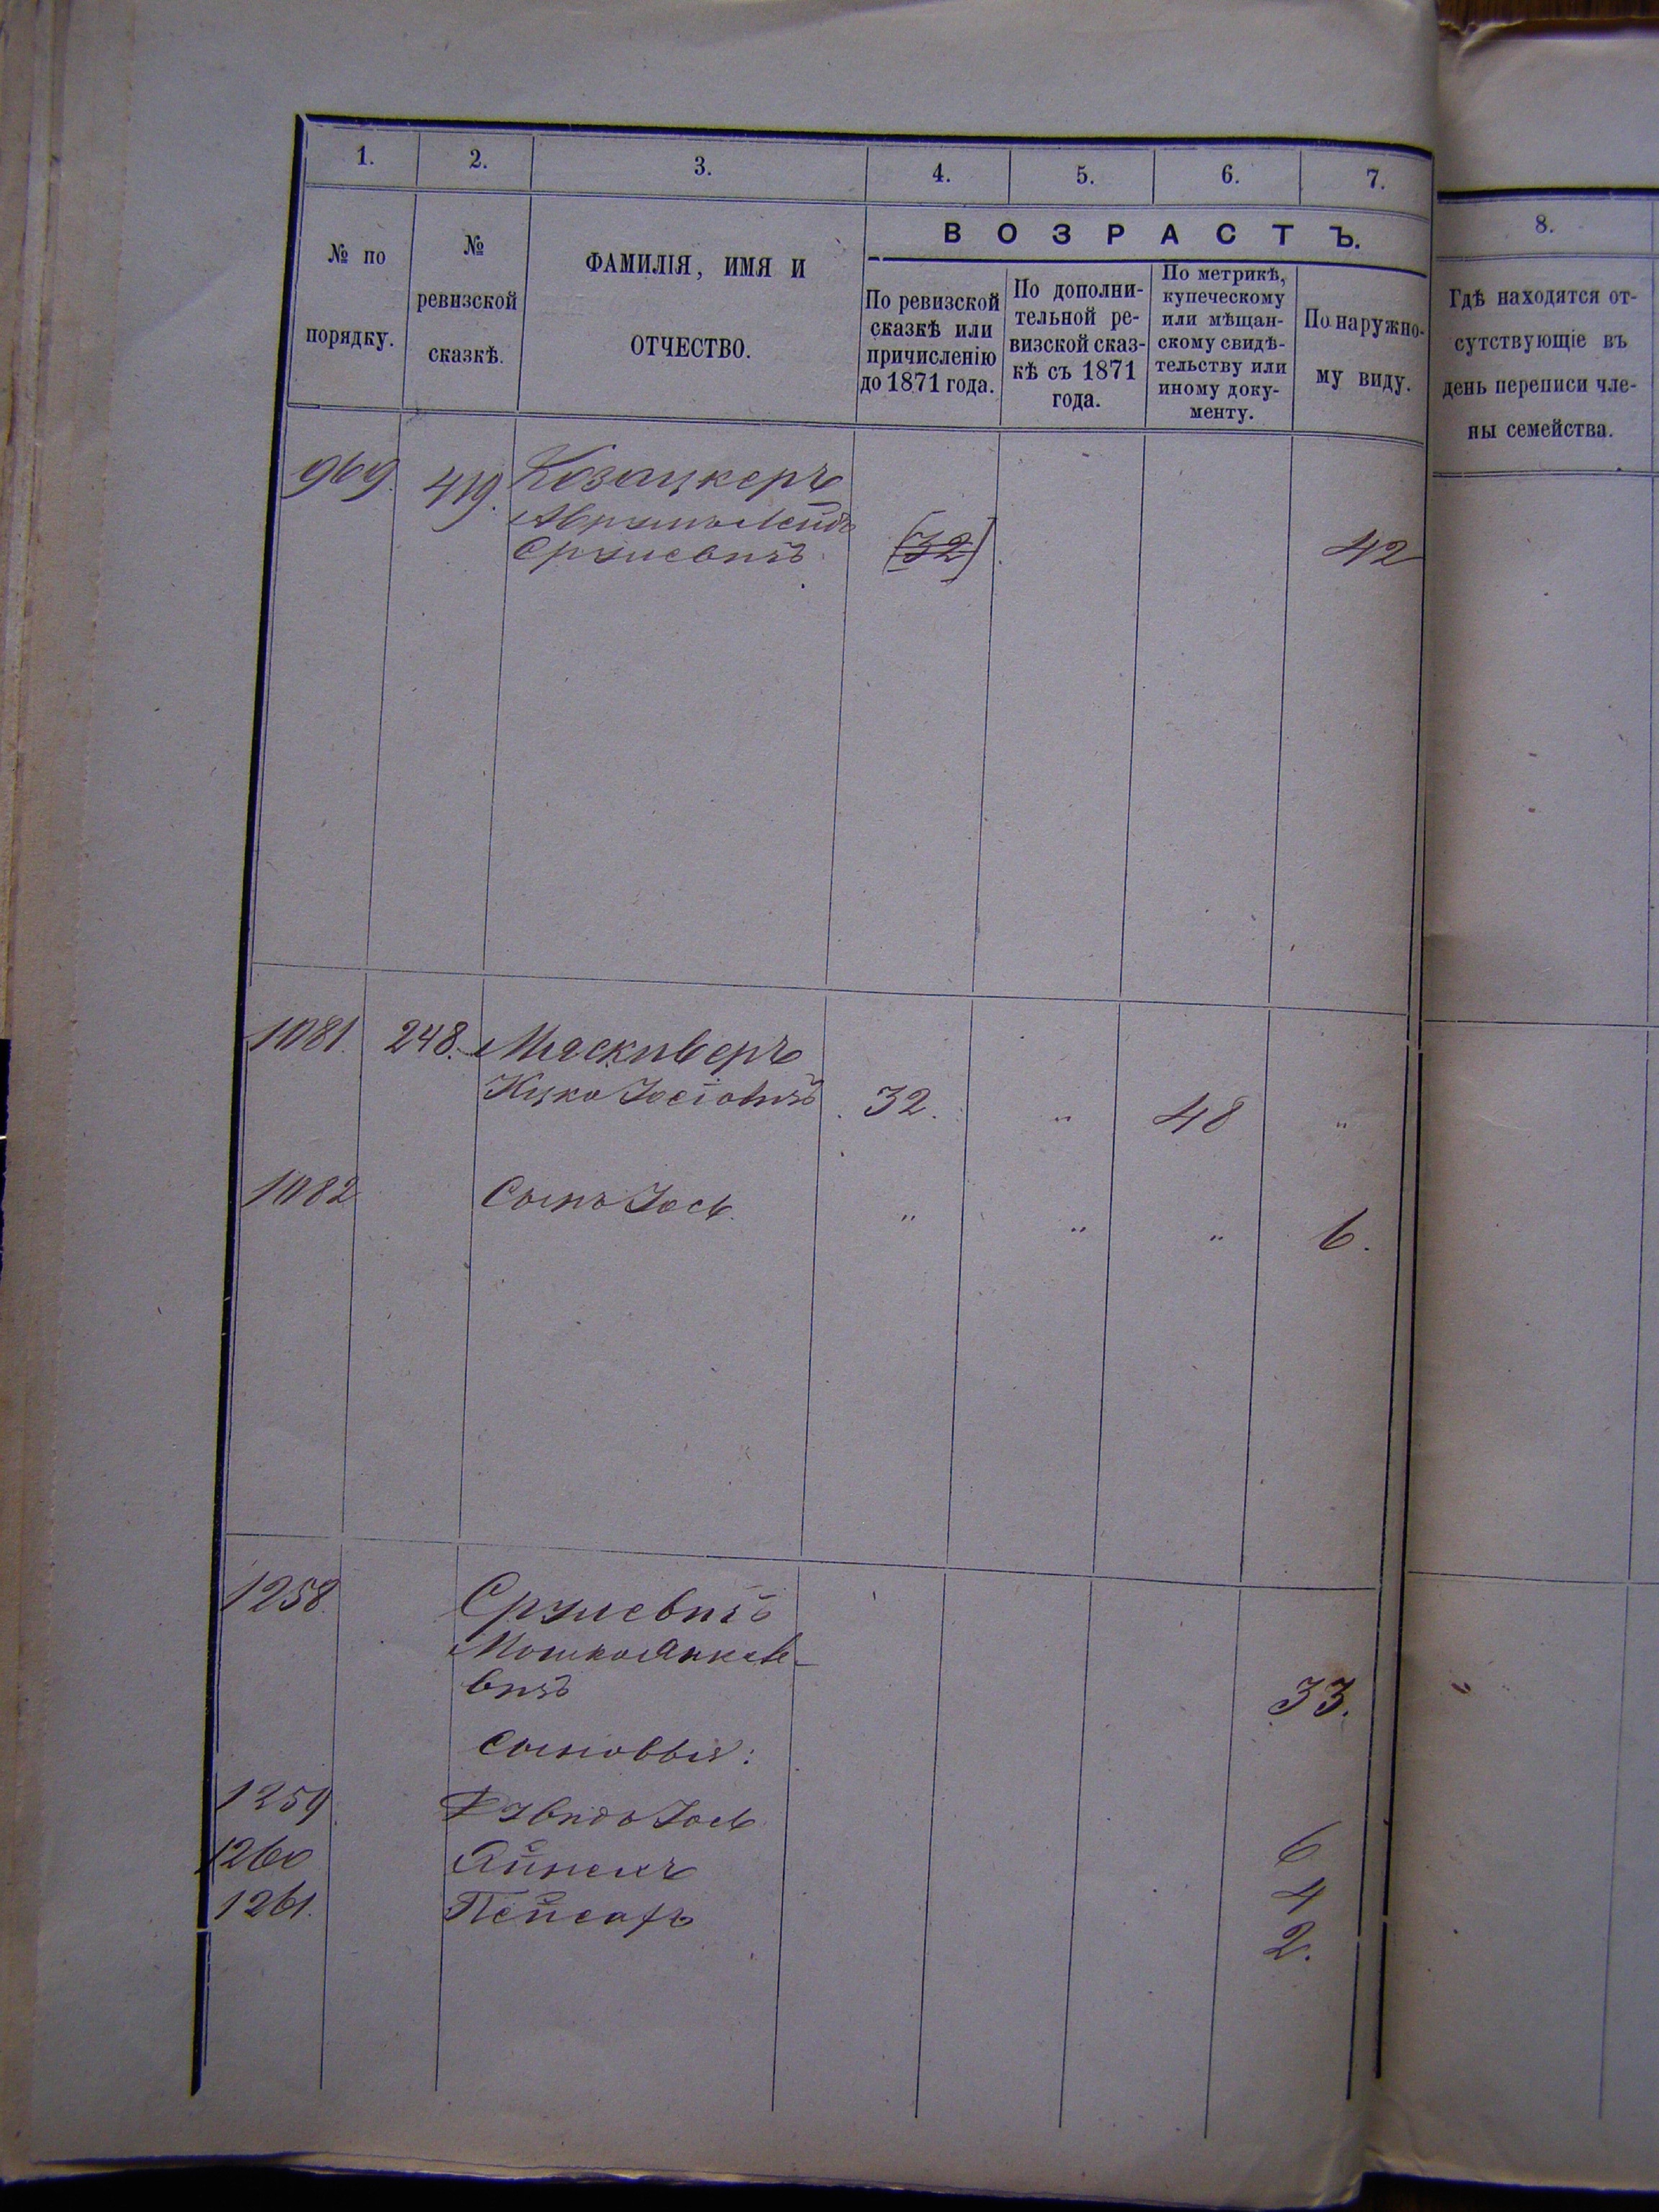 1. 2. 3. 4. 5. 6. 7.
8.
ВОЗРАСТЪ.
№ по
порядку.
№
ревизской
сказкѣ.
ФАМИЛІЯ, ИМЯ И
ОТЧЕСТВО.
По ревизской
сказкѣ или
причисленію
до 1871 года.
По дополни-
тельной ре-
визской сказ-
кѣ съ 1871
года.
По метрикѣ,
купеческому
или мѣщан-
скому свидѣ-
тельству или
иному доку-
менту.
По наружно-
му виду.
Гдѣ находятся от-
сутствующіе въ
день переписи чле-
ны семейства.
969. 419. Козацкеръ
Аврумъ Лейбъ
Срулевичъ (32) 42
1081. 248. Мяскиверъ
Ицко Іосіовичъ 32. " 48 "
1082 Сынъ Іось " " " 6.
1258. Срулевичъ
Мошко Янкеле-
вичъ 33.
сыновья:
1259 Іось 6
1260 4
1261. Пейсахъ 2.